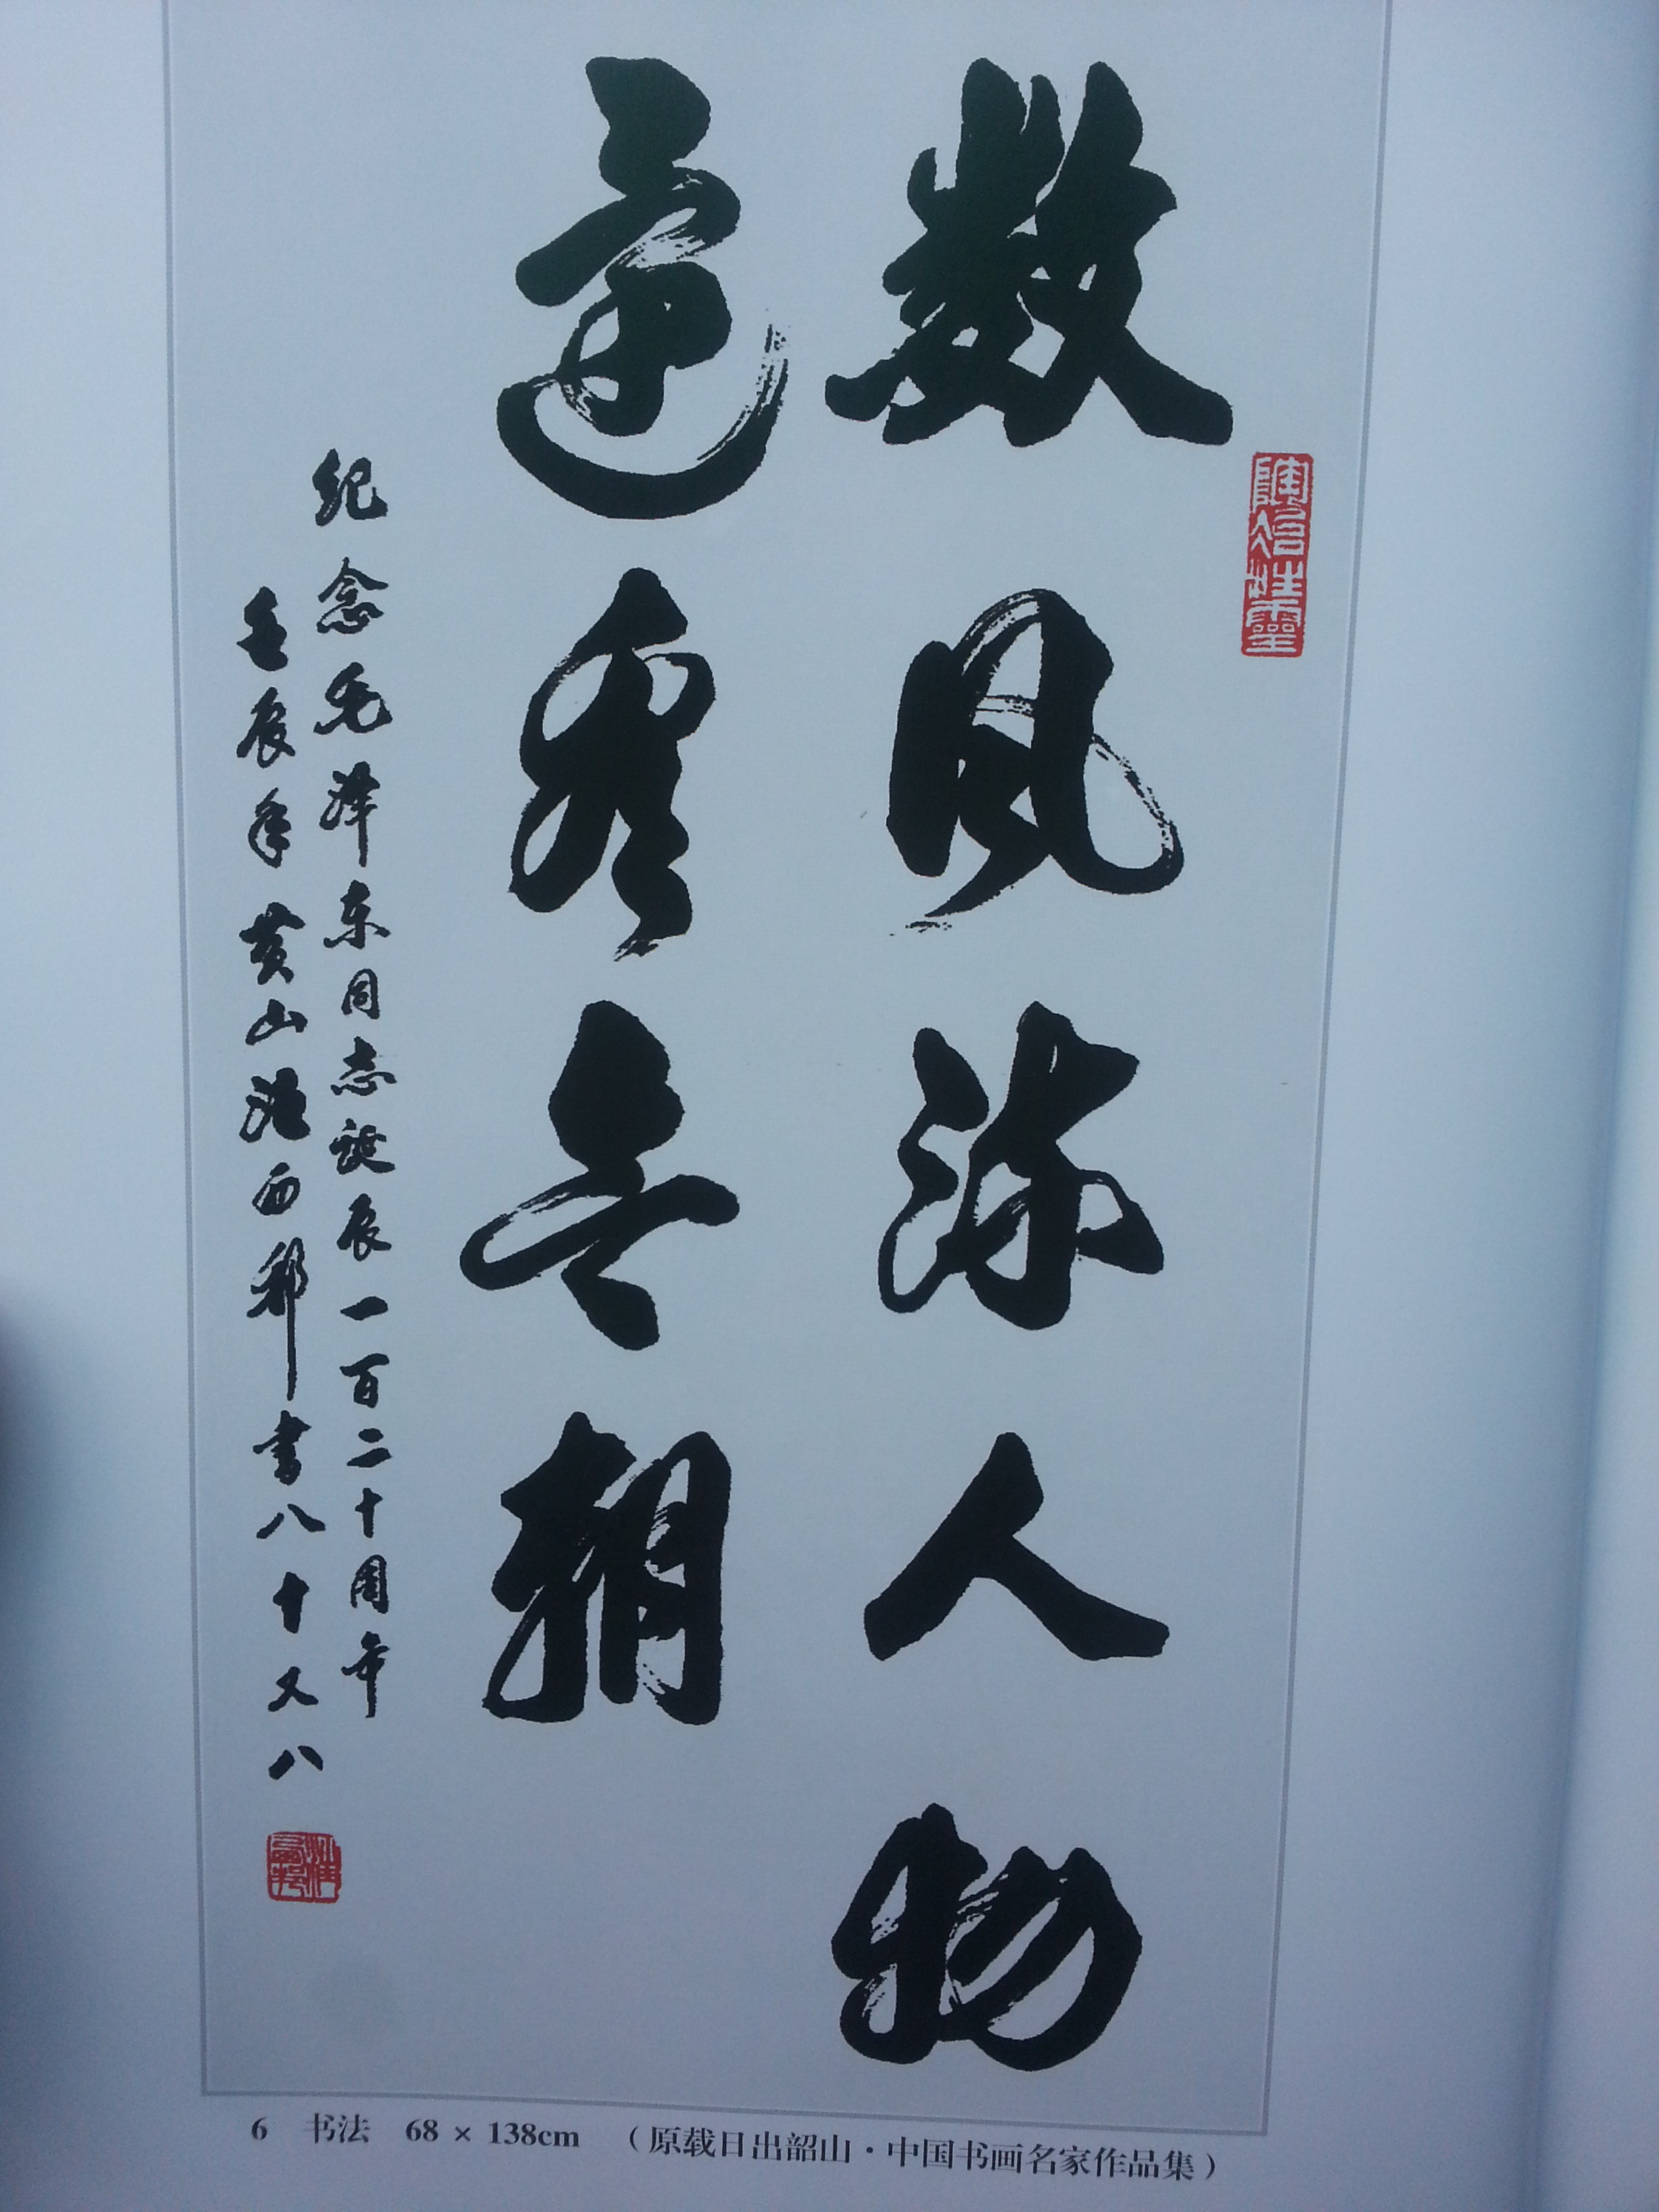 陶冶性靈
数风流人物
還看今朝
纪念毛泽东同志诞辰一百二十周年
壬辰年黄山西邦書八十又八
6 书法 68 × 138cm （原载日出韶山·中国书画名家作品集）